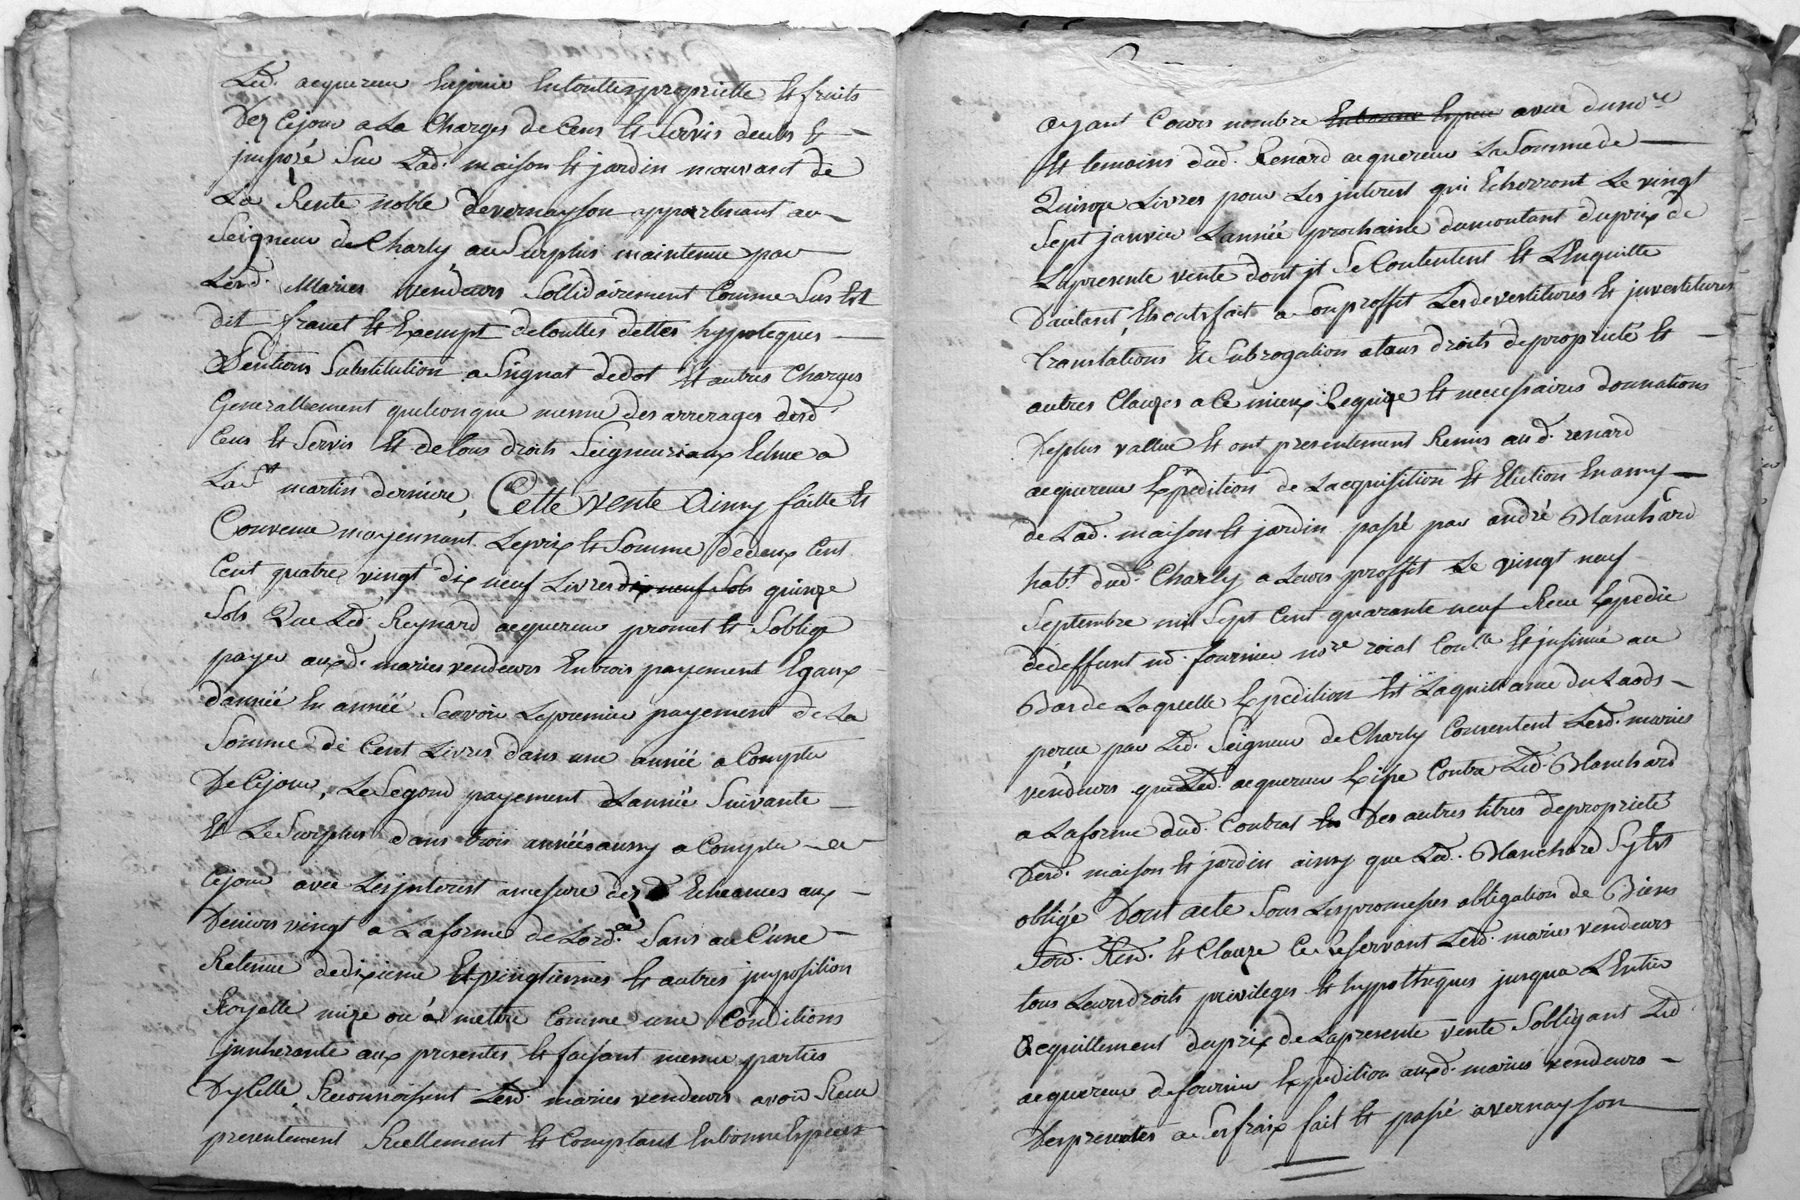 Led. acquereur En jouir En toutte propriette Et fruits
Dez Cejour a La Charges de Cens Et Servis deubs Et
jmposé Sur Lad. maison Et jardin mouvant de
La Rente noble de vernayson appartenant au
Seigneur de Charly, au Surplus maintenue par
Lesd. Maries vendeurs Sollidairement Comme Sus Est
dit franct Et Exempt de touttes dettes hypoteques
Substitution augment de dot Et autres Charges
Generallement quelconque meme des arrerages desd.
Cens Et Servis Et de tous droits Seigneuriaux Echue a
La St martin derniere, Cette vente Ainsy faitte Et
Convenue moyennant Le prix Et Somme de deux Cent
Cent quatre vingt dix neuf Livres dix neuf Sols quinze
Sols Que Led. Reynard acquereur promet Et Soblige
payer auxd. maries vendeurs En trois payement Egaux
dannéé En annéé Scavoir Le premier payement de La
Somme de Cent Livres dans une année a Compter
De Cejour, Le Segond payement Lannéé Suivante
Et Le Surplus dans trois annéés aussy a Compter de
Cejour avec Les jnterest amesure dez Echeances aux
Deniers vingt a La forme de Lord.ce Sans auCune
Retenue de dixieme Et vingtiemes Et autres jmposition
Royalle mize ou á mettre Comme une Conditions
jnnherante aux presentes Et faisant meme parties
Dycelle Reconnoissent Lesd. maries vendeurs avoir Receu
presentement Reellement Et Comptant En bonne Especes
ayant Cours nombre En bonne Especes a veue du no.re
Et temoins dud. Renard acquereur La Somme de
Quinze Livres pour Les jnterest qui Echerront Le vingt
Sept janvier Lannéé prochaine du montant du prix de
La presente vente dont jl Se Contentent Et Lenquitte
Dautant, Et ont fait a Son proffit Les devestitures Et jnvestitures
Translations Et Subrogation a tous droits de propriété Et
autres Clauzes a Ce mieux Requize Et necessaires donnations
De plus vallue Et ont presentement Remis aud. renard
acquereur Expedition de Lacquisition Et Election En amy
de Lad. maison Et jardin passé par andré Blanchard
hab.t dud. Charly a Leurs proffit Le vingt neuf
Septembre mil Sept Cent quarante neuf Receu Expedie
de deffunt m.d fournier no.re roial Et jnsinué au
Bas de Laquelle Expedition Est La quittance du Laods
perceu par Led. Seigneur de Charly Consentent Lesd. maries
vendeurs que Led. acquereur Contre Led. Blanchard
a La forme dud. Contrat Des autres titres de propriété
Desd. maison Et jardin ainsy que Led. Blanchard Sy Est
obligé Dont acte Sous Les promesses obligation de Biens
Et Clauze Ce Reservant Lesd. maries vendeurs
tous Leurs droits privileges Et hypotteques jusqua LEntier
acquittement du prix de La presente vente Sobligant Led.
acquereur de fournir Expedition auxd. maries vendeurs
Des presentes a Ses fraix fait Et passé a vernayson